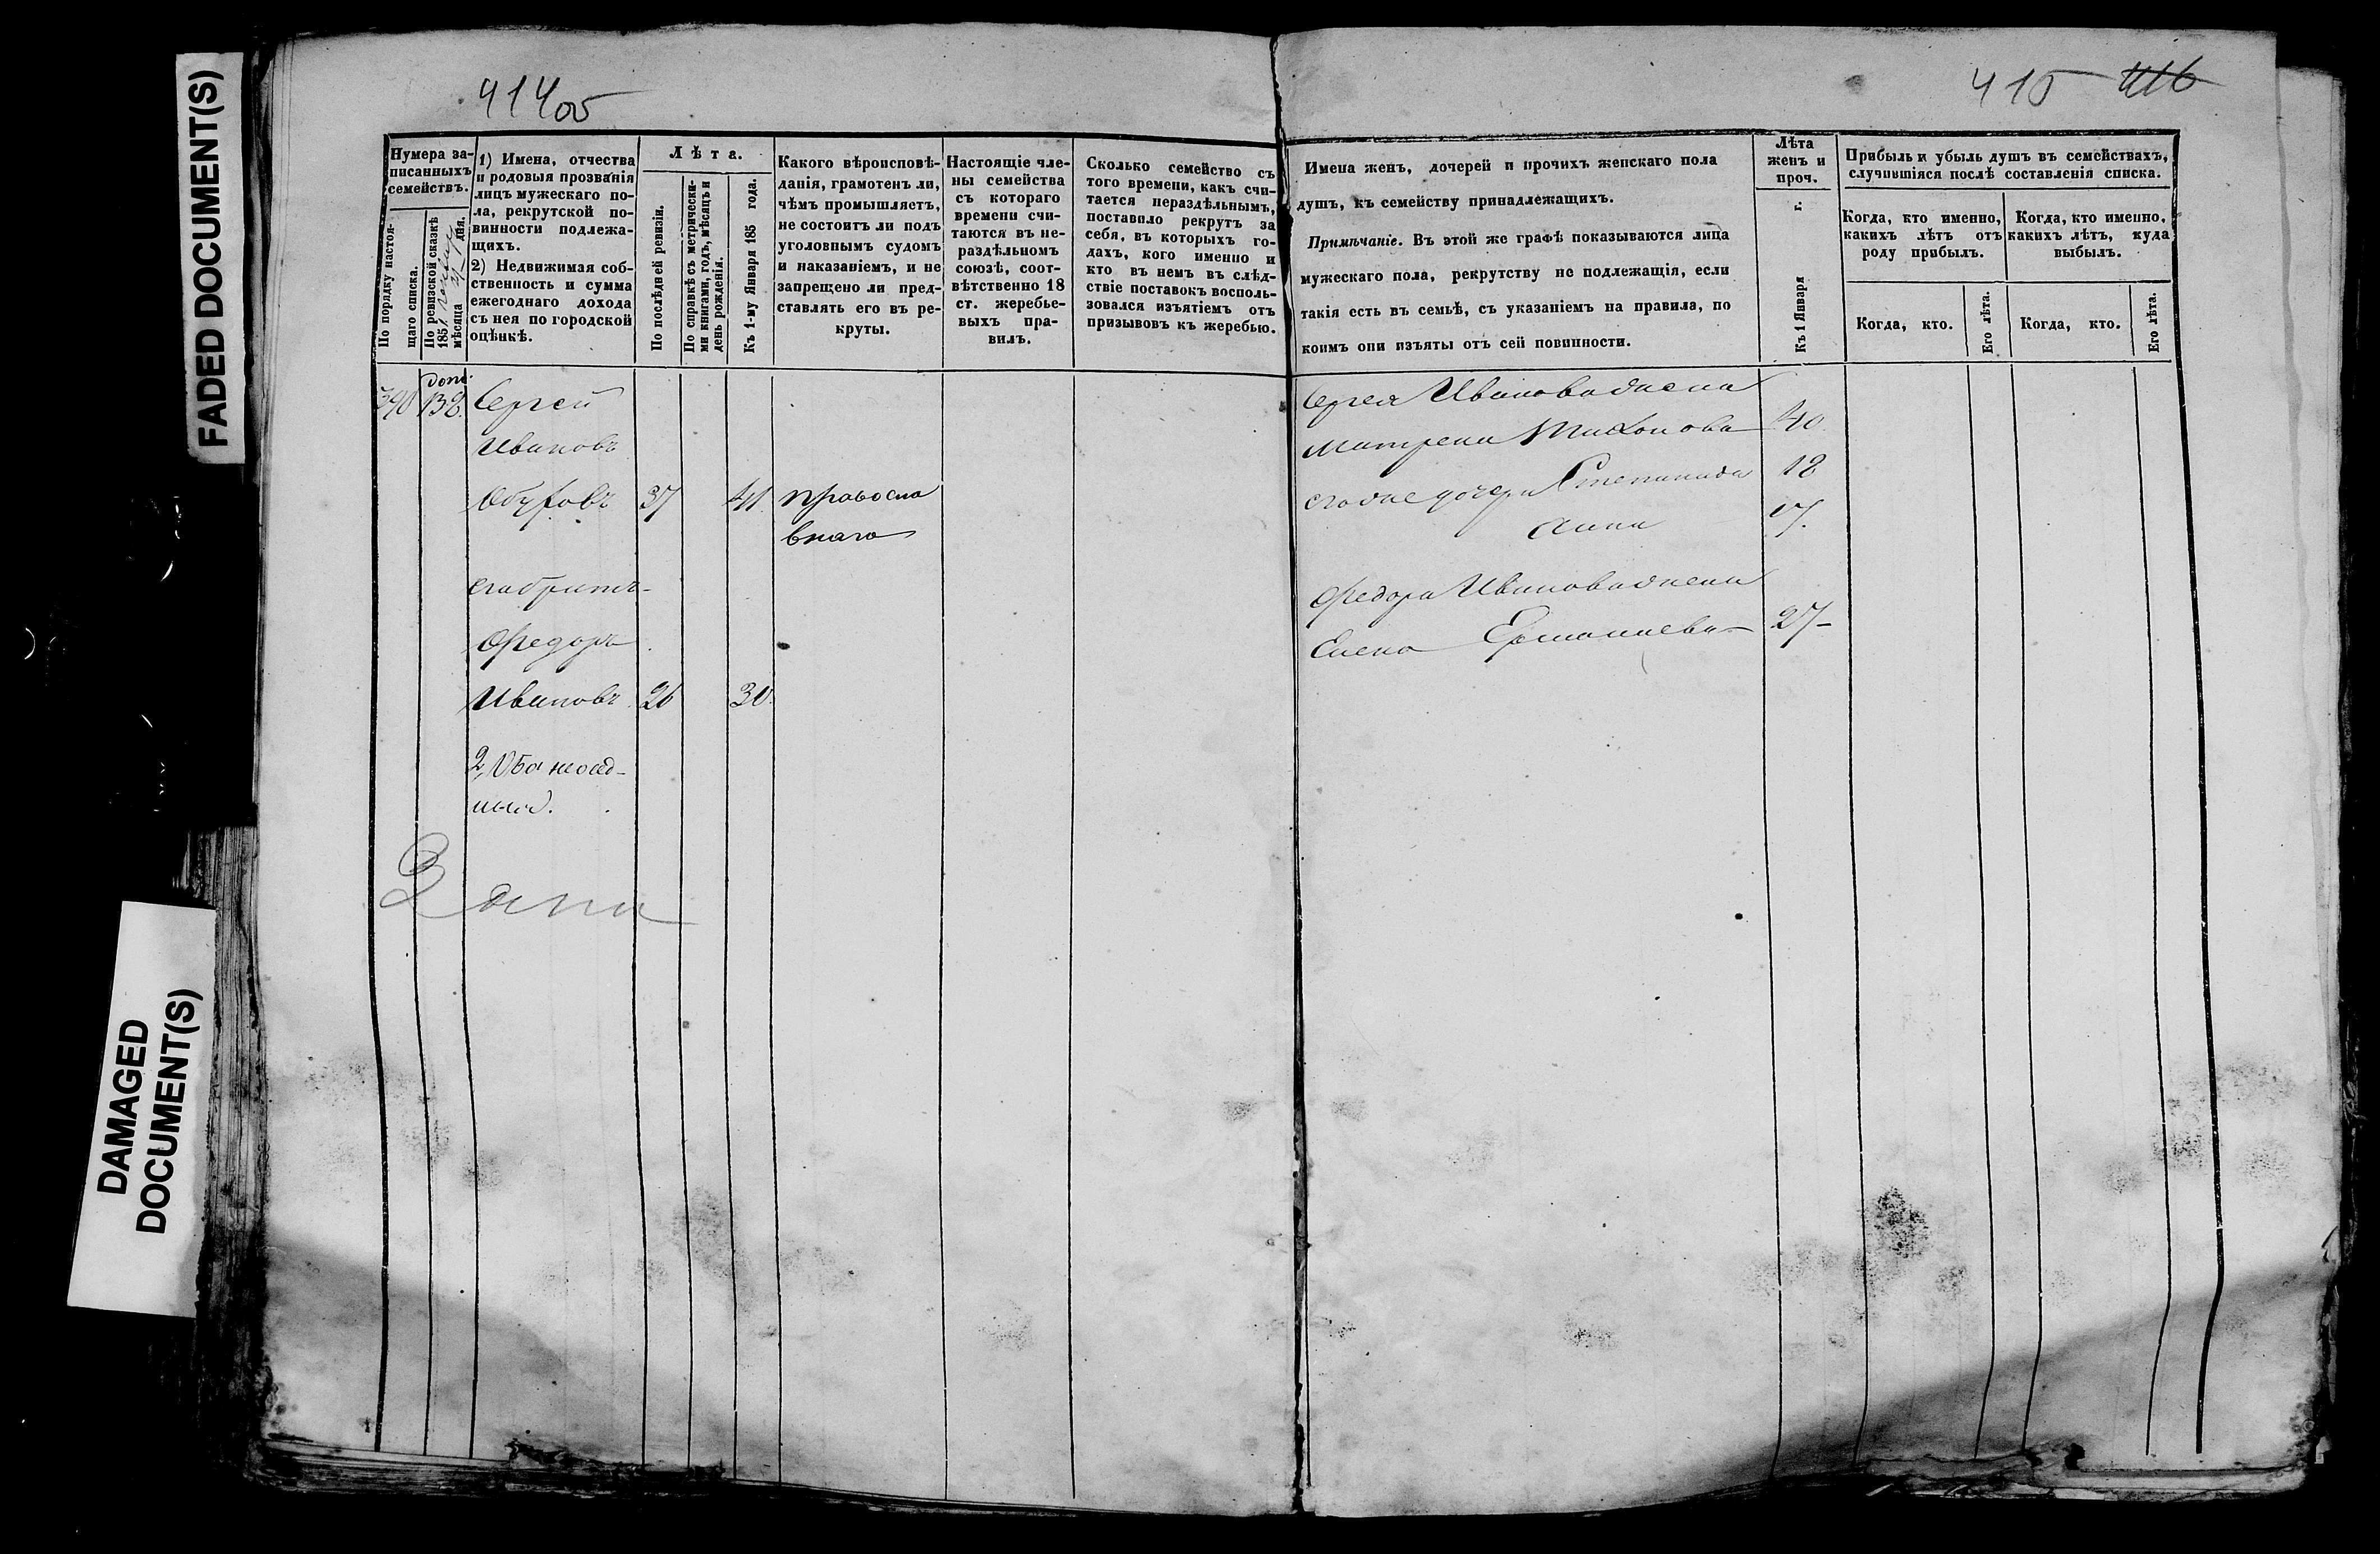 FADED DOCUMENT(S)
DAMAGED
DOCUMENT(S)
414 об
415 416
Нумера за-
писанныхъ
семействъ.
По порядку настоя-
щаго списка.
По ревизской сказкѣ
185
мѣсяца дня.
1) Имена, отчества
и родовыя прозванія
лицъ мужескаго по-
ла, рекрутской по-
винности подлежа-
щихъ.
2) Недвижимая соб-
ственность и сумма
ежегоднаго дохода
съ нея по городской
оцѣнкѣ.
Лѣта.
По послѣдней ревизіи.
По справкѣ съ метрически-
ми книгами, годъ, мѣсяцъ и
день рожденія.
Къ 1-му Января 185 года.
Какого вѣроисповѣ-
данія, грамотенъ ли,
чѣмъ промышляетъ,
не состоитъ ли подъ
уголовнымъ судомъ
и наказаніемъ, и не
запрещено ли пред-
ставлять его въ ре-
круты.
Настоящіе чле-
ны семейства
съ котораго
времени счи-
таются въ не-
раздѣльномъ
союзѣ, соот-
вѣтственно 18
ст. жеребье-
выхъ пра-
вилъ.
Сколько семейство съ
того времени, какъ счи-
тается нераздѣльнымъ,
поставило рекрутъ за
себя, въ которыхъ го-
дахъ, кого именно и
кто въ немъ въ слѣд-
ствіе поставокъ восполь-
зовался изъятіемъ отъ
призывовъ къ жеребью.
Имена женъ, дочерей и прочихъ женскаго пола
душъ, къ семейству принадлежащихъ.
Примѣчаніе. Въ этой же графѣ показываются лица
мужескаго пола, рекрутству не подлежащія, если
такія есть въ семьѣ, съ указаніемъ на правила, по
коимъ они изъяты отъ сей повинности.
Лѣта
женъ и
проч.
Къ 1 Января г.
Прибыль и убыль душъ въ семействахъ,
случившіяся послѣ составленія списка.
Когда, кто именно,
какихъ лѣтъ отъ
роду прибылъ.
Когда, кто именно,
какихъ лѣтъ, куда
выбылъ.
Когда, кто.
Его лѣта.
Когда, кто.
Его лѣта.
доп.
390 138. Сергей
Ивановъ
37 41 православнаго
его братъ
Федоръ
Ивановъ 26 30.
Сергея Иванова жена
Матрена Тихонова 40.
его же дочери Степанида 18
Анна 17.
Федора Иванова жена
Елена Ермолаева 27